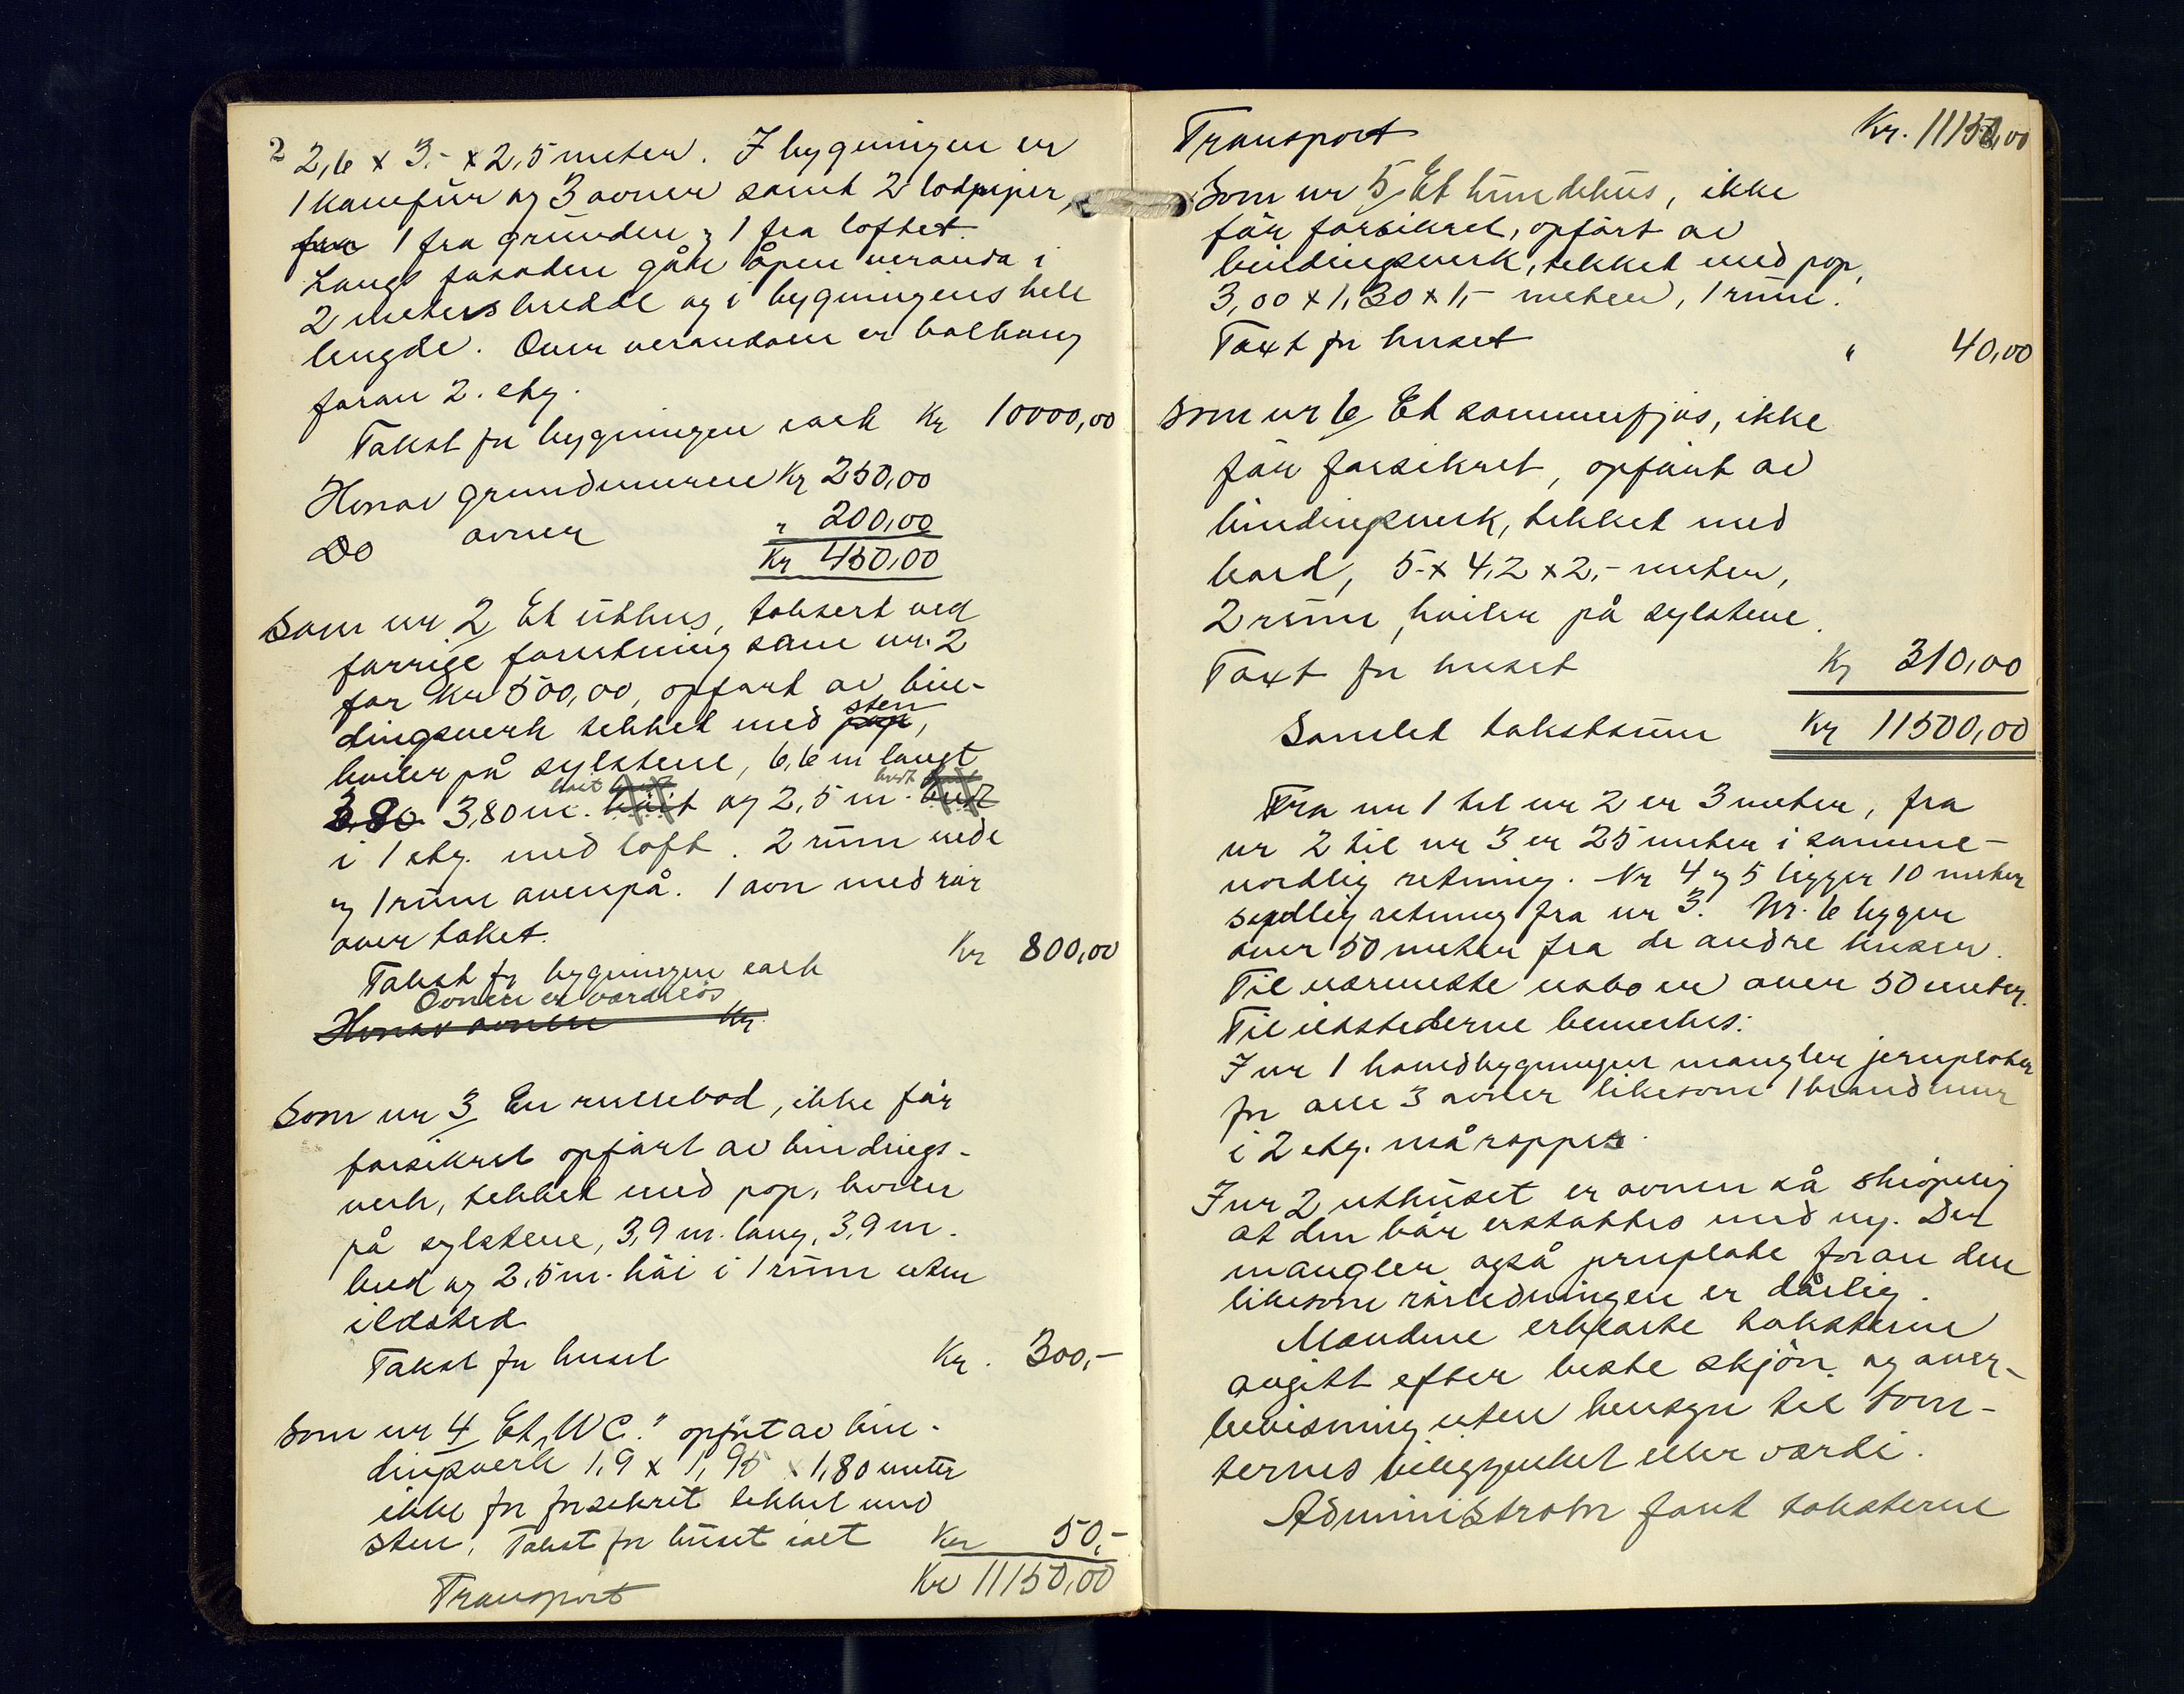 2
2,6 x 3.- x 2,5 meter. I bygningen er
1 komfür og 3 avner samt 2 lodpiper,
fra 1 fra gründen og 1 fra loftet.
Langs fasaden gåti åpen veranda i
2 meters bredde og i bygningens hele
lengde. Over verandaen er balkong
foran 2. etg.
Takst for bygningen ialt Kr 10000,00
Herav grundmuren Kr 250,00
Do ovner " 200,00
Kr 450,00
Som nr 2 Et üthus, taksert ved
forrige forretning som nr. 2
for Kr 500,00, opført av bin-
dingsverk tekket med pap, sten
hviler på sylstene, 6,6 m langt
3,80 3,80 m. høit og 2,5 m. bredt
i 1 etg. med loft. 2 rüm nede
og 1 rüm ovenpå. 1 ovn med rør
over taket.
Takst for bygningen ialt Kr 800,00
Ovnen er værdiløs
Herav ovnen Kr.
Som nr 3 En rullebod, ikke før
forsikret opført av bindings-
verk, tekket med pap, hviler
på sylstene, 3,9 m. lang, 3,9 m.
bred og 2,5 m. høi i 1 rüm uten
ildsted
Takst for huset Kr. 300,-
Som nr 4 Et "WC." opført av bin-
dingsverk 1,9 x 1,95 x 1,80 meter
ikke før forsikret tekket med
sten. Takst for hüset ialt Kr 50,-
Transport Kr 11150,00
Transport Kr. 11150,00
Som nr 5 Et hündehüs, ikke
før forsikret, opført av
bindingsverk, tekket med pap,
3,00 x 1,30 x 1,- meter, 1 rüm.
Taxt for huset " 40,00
Som nr 6 Et sommerfjøs, ikke
før forsikret, opført av
bindingsverk, tekket med
bord, 5.- x 4,2 x 2,- meter,
2 rüm, hviler på sylstene.
Taxt for huset Kr 310,00
Samlet takstsüm Kr 11500,00
Fra nr 1 til nr 2 er 3 meter, fra
nr 2 til nr 3 er 25 meter i samme-
nordlig retning. Nr 4 og 5 ligger 10 meter
sydlig retning fra nr 3. Nr. 6 ligger
over 50 meter fra de andre huser.
Til nærmeste nabo er over 50 meter.
Til ildstederne bemerkes:
I nr 1 hovedbygningen mangler jernplater
for alle 3 ovner likesom 1 brandmur
i 2 etg. må rappes.
I nr 2 uthüset er ovnen så skrøpelig
at den bør erstattes med ny. Det
mangler også jernplate foran den
likesom rørledningen er dårlig.
Mændene erklærte taksterne
avgitt efter beste skjøn og over-
bevisning uten hensyn til tom-
ternes beliggenhet eller værdi.
Administrator fant taksterne